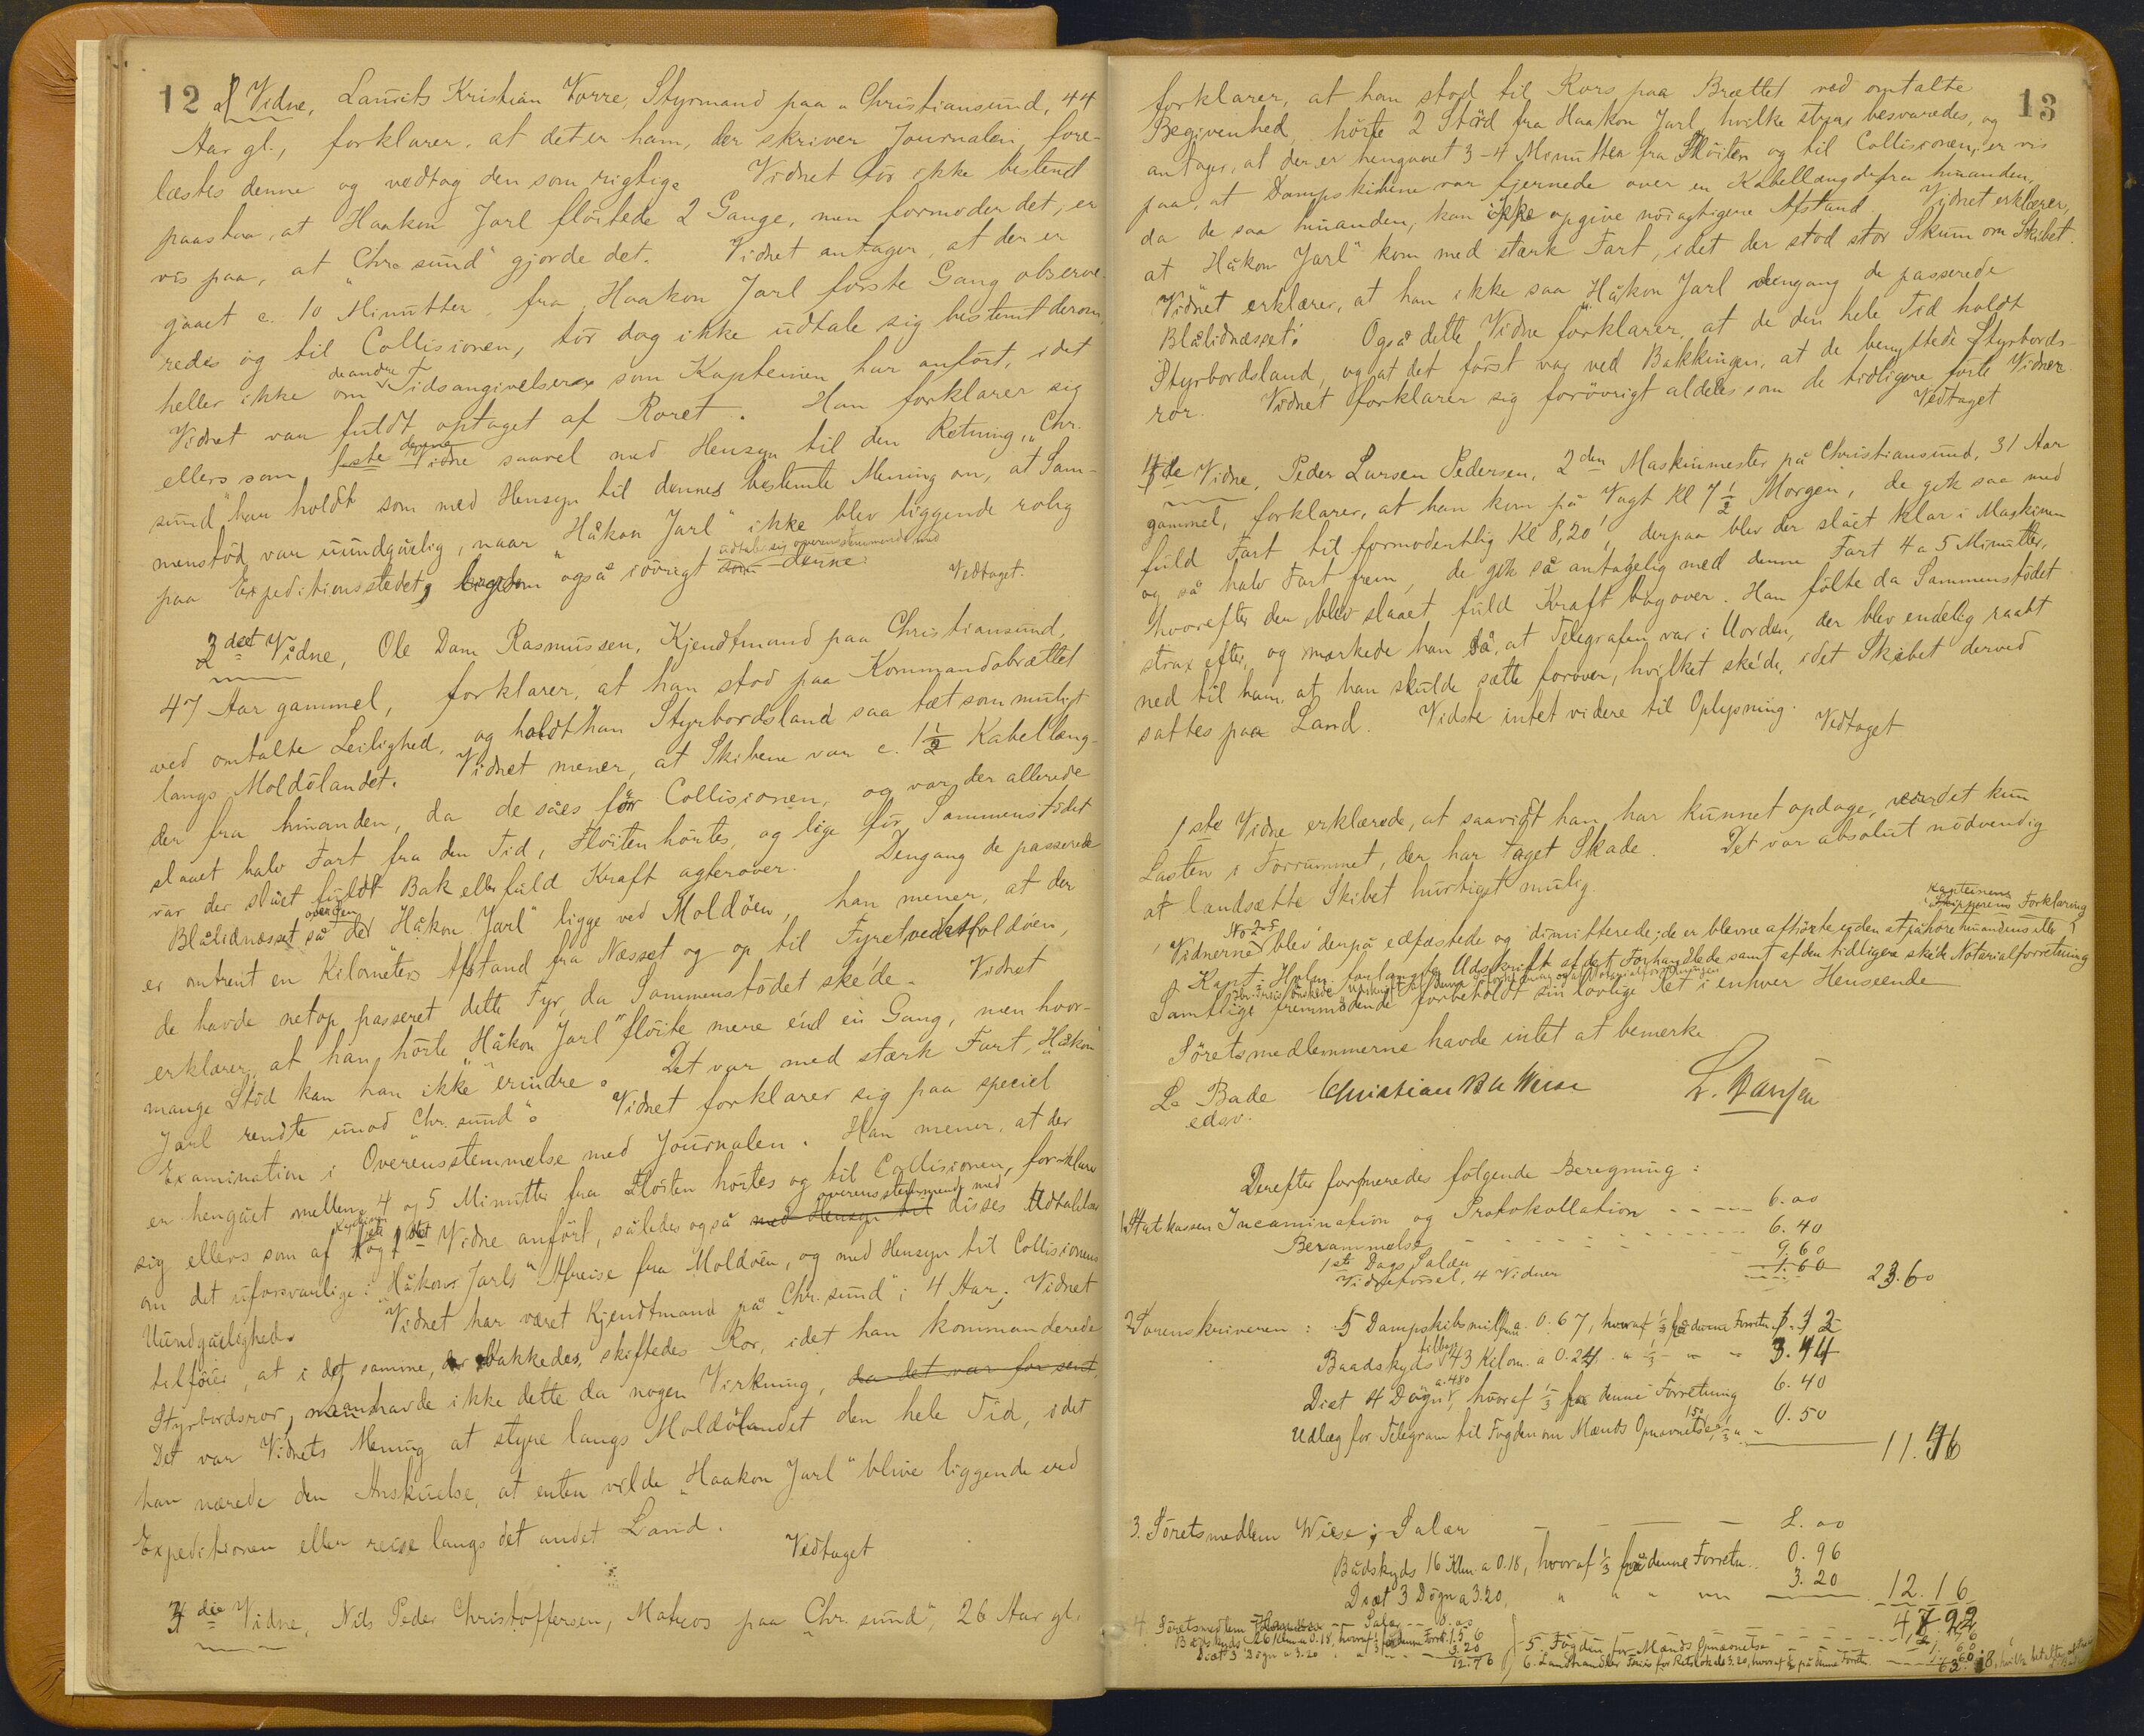 12
2 Vidne, Laurits Kristian Vorre, Styrmand paa „Christiansund, 44
Aar gl., forklarer, at det er ham, der skriver Journalen, fore-
læstes denne og vedtog den som rigtig. Vidnet tör ikke bestemt
paastaa, at Haakon Jarl flöitede 2 Gange, men formoder det, er
vis paa, at „Chr.sund" gjorde det. Vidnet antager, at der er
gaaet c. 10 Minutter, fra Haakon Jarl förste Gang observe-
redes og til Collisionen, tör dog ikke udtale sig bestemt derom,
heller ikke om de andre Tidsangivelser som Kapteinen har anfört, idet
Vidnet var fuldt optaget af Roret. Han forklarer sig
ellers som 1ste Vidne saavel med Hensyn til den Retning, „Chr.
sund" har holdt som med Hensyn til dennes bestemte Mening om, at Sam-
menstöd var uundgåelig, naar „Håkon Jarl" ikke blev liggende rolig
paa Expeditionsstedet, ligesom også iövrigt udtale sig overensstemmende med denne.
Vedtaget.
3 det Vidne, Ole Dam Rasmussen, Kjendtmand paa Christiansund,
47 Aar gammel, forklarer, at han stod paa Kommandobrættet
ved omtalte Leilighed, og holdt han Styrbordsland saa tæt som muligt
langs Moldölandet. Vidnet mener, at Skibene var c. 1½ Kabellæng-
der fra hinanden, da de såes för Collisionen, og var der allerede
slaaet halv Fart fra den Tid, Flöiten hörtes, og lige för Sammenstödet
var der slåét fuldt Bak eller fuld Kraft agterover. Dengang de passerede
Blålidnæsset så de „Håkon Jarl" ligge ved Moldöen, han mener, at der
er omtrent en Kilometers Afstand fra Næsset og op til Fyret ved Moldöen,
de havde netop passeret dette Fyr, da Sammenstödet skéde. Vidnet
erklærer, at han hörte „Håkon Jarl" flöite mere énd én Gang, men hvor-
mange Stöd kan han ikke erindre. Det var med stærk Fart, „Håkon
Jarl rendte imod „Chr.sund". Vidnet forklarer sig paa speciel
Examination i Overensstemmelse med Journalen. Han mener, at der
er hengåét mellem 4 og 5 Minutter fra Flöiten hörtes og til Collisionen, forklarer
sig ellers som af 1ste Vidne anfört, således også med Hensyn til overensstemmende med disses Udtalelser
om det uforsvarlige i „Håkon Jarls" Afreise fra Moldöen, og med Hensyn til Collisionens
Uundgåelighed. Vidnet har været Kjendtmand på „Chr.sund" i 4 Aar; Vidnet
tilföier, at i det samme, der bakkedes, skiftedes Ror, idet han kommanderede
Styrbordsror, men havde ikke dette da nogen Virkning, da det var for sent.
Det var Vidnets Mening at styre langs Moldölandet den hele Tid, idet
han nærede den Anskuelse, at enten vilde „Haakon Jarl" blive liggende ved
Expeditionen eller reise langs det andet Land.
Vedtaget
4 die Vidne, Nils Peder Christoffersen, Matros paa „Chr.sund", 26 Aar gl.
13
forklarer, at han stod til Rors paa Brættet ved omtalte
Begivenhed, hörte 2 Stöd fra Haakon Jarl, hvilke strax besvaredes, og
antager, at der er hengaaet 3-4 Minutter fra Flöiten og til Collisionen, er vis
paa, at Dampskibene var fjernede over en Kabellængde fra hinanden,
da de saa hinanden, kan ikke opgive nöiagtigere Afstand. Vidnet erklærer,
at „Håkon Jarl" kom med stærk Fart, idet der stod stor Skum om Skibet.
Vidnet erklærer, at han ikke saa „Håkon Jarl dengang de passerede
Blålidnæsset. Også dette Vidne forklarer, at de den hele Tid holdt
Styrbordsland, og at det först var ved Bakkingen, at de benyttede Styrbords-
ror. Vidnet forklarer sig forövrigt aldeles som de tidligere förte Vidner.
Vedtaget
5te Vidne, Peder Larsen Pedersen, 2den Maskinmester på Christiansund, 31 Aar
gammel, forklarer, at han kom på Vagt Kl 7½ Morgen, de gik saa med
fuld Fart til formodentlig Kl 8,20, derpaa blev der slåét klar i Maskinen
og så halv Fart frem, de gik så antagelig med denne Fart 4 a 5 Minutter,
hvorefter der blev slaaet fuld Kraft bagover. Han fölte da Sammenstödet
strax efter, og mærkede han då, at Telegrafen var i Uorden, der blev endelig raabt
ned til ham, at han skulde sætte forover, hvilket skéde, idet Skibet derved
sattes paa Land. Vidste intet videre til Oplysning.
Vedtaget
1ste Vidne erklærede, at saavidt han har kunnet opdage, var det kun
Lasten i Forrummet, der har taget Skade. Det var absolut nödvendig
at landsætte Skibet hurtigst mulig.
Vidnerne No 2-5 blev derpå edfæstede og dimitterede; de er blevne afhörte uden at påhöre hinandens eller Kapteinens Forklaring
Kapt. Holm forlangte Udskrift af det Forhandlede samt af den tidligere skéde Notarialforretning
Samtlige fremmödende forbeholdt sin lovlige Ret i enhver Henseende
Söretsmedlemmerne havde intet at bemerke
L. Bade Christian B M Wiese L. Hansen
edsv.
Derefter formeredes fölgende Beregning:
1 Statskassen Incamination og Protokollation ----- 6.00
Berammelse ----- 6.40
1ste Dags Salær 9.60
Vidneförsel, 4 Vidner 1.60 23.60
2 Sorenskriveren: 5 Dampskibsmil a 0.67, hvoraf ⅓ på denne Forretn 1.12
Baadskyds tilbage 43 Kilom. a 0.24 " ⅓ " " 3.44
Diæt 4 Dögn a. 4.80, hvoraf ⅓ på denne Forretning 6.40
Udlæg for Telegram til Fogden om Mænds Opnævnelse 1.50, ⅓ " 0.50
11.46
3. Söretsmedlem Wiese; Salær 8.00
Bådskyds 16 Klm. a 0.18, hvoraf ⅓ på denne Forretn. 0.96
Diæt 3 Dögn a 3.20, " " " 3.20 12.16
4. Söretsmedlem Hansen Salær 8.00
Bådskyds 26 Klm a 0.18, hvoraf ⅓ på denne Forr. 1.56
Diæt 3 Dögn a 3.20 3.20
12.76
5. Fogden for Mænds Opnævnelse
6. Landhandler for Retslokale 3.20, hvoraf ½ på denne Forretn.